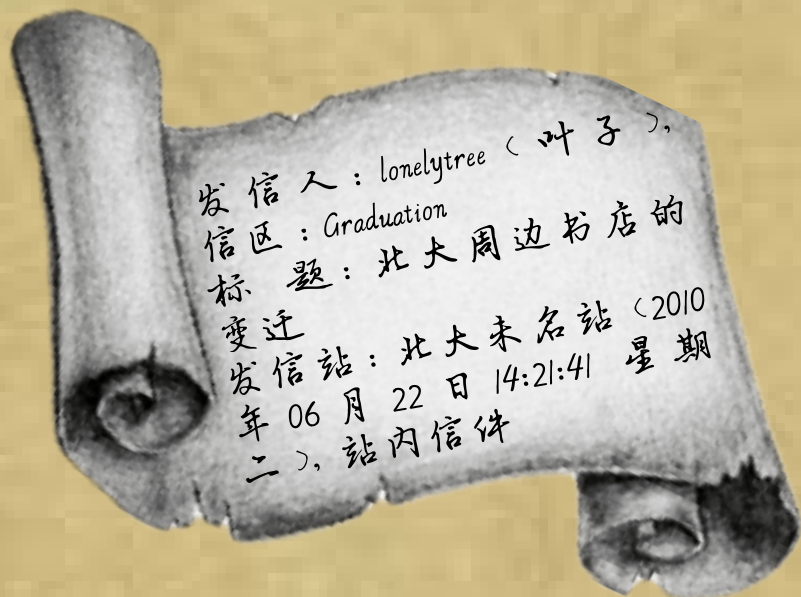 发信人：lonelytree（叶子），
信区：Graduation
标 题：北大周边书店的
变迁
发信站：北大未名站（2010
年 06 月 22 日 14:21:41 星期
二），站内信件